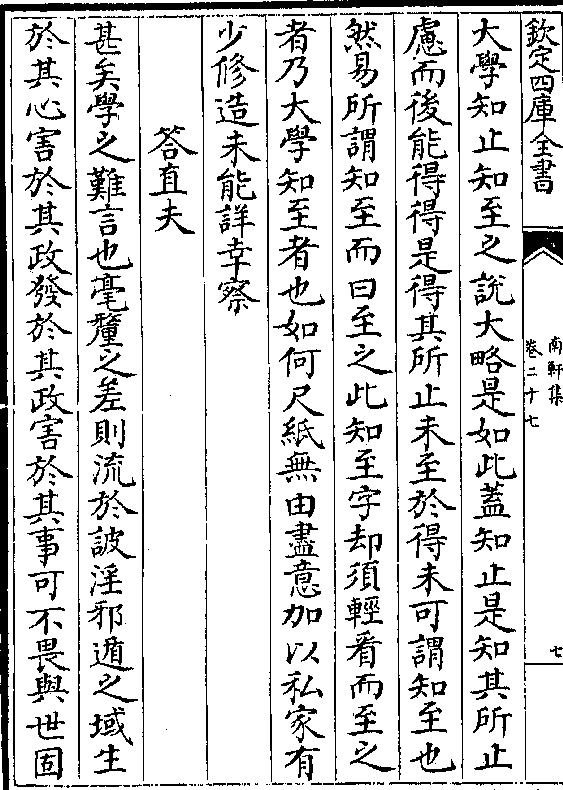 欽定四庫全書
南軒集
卷二十七
七
大學知止知至之說大略是如此蓋知止是知其所止
慮而後能得得是得其所止未至於得未可謂知至也
然易所謂知至而曰至之此知至字却須輕看而至之
者乃大學知至者也如何尺紙無由盡意加以私家有
少修造未能詳幸察
答直夫
甚矣學之難言也毫釐之差則流於詖淫邪遁之域生
於其心害於其政發於其政害於其事可不畏與世固